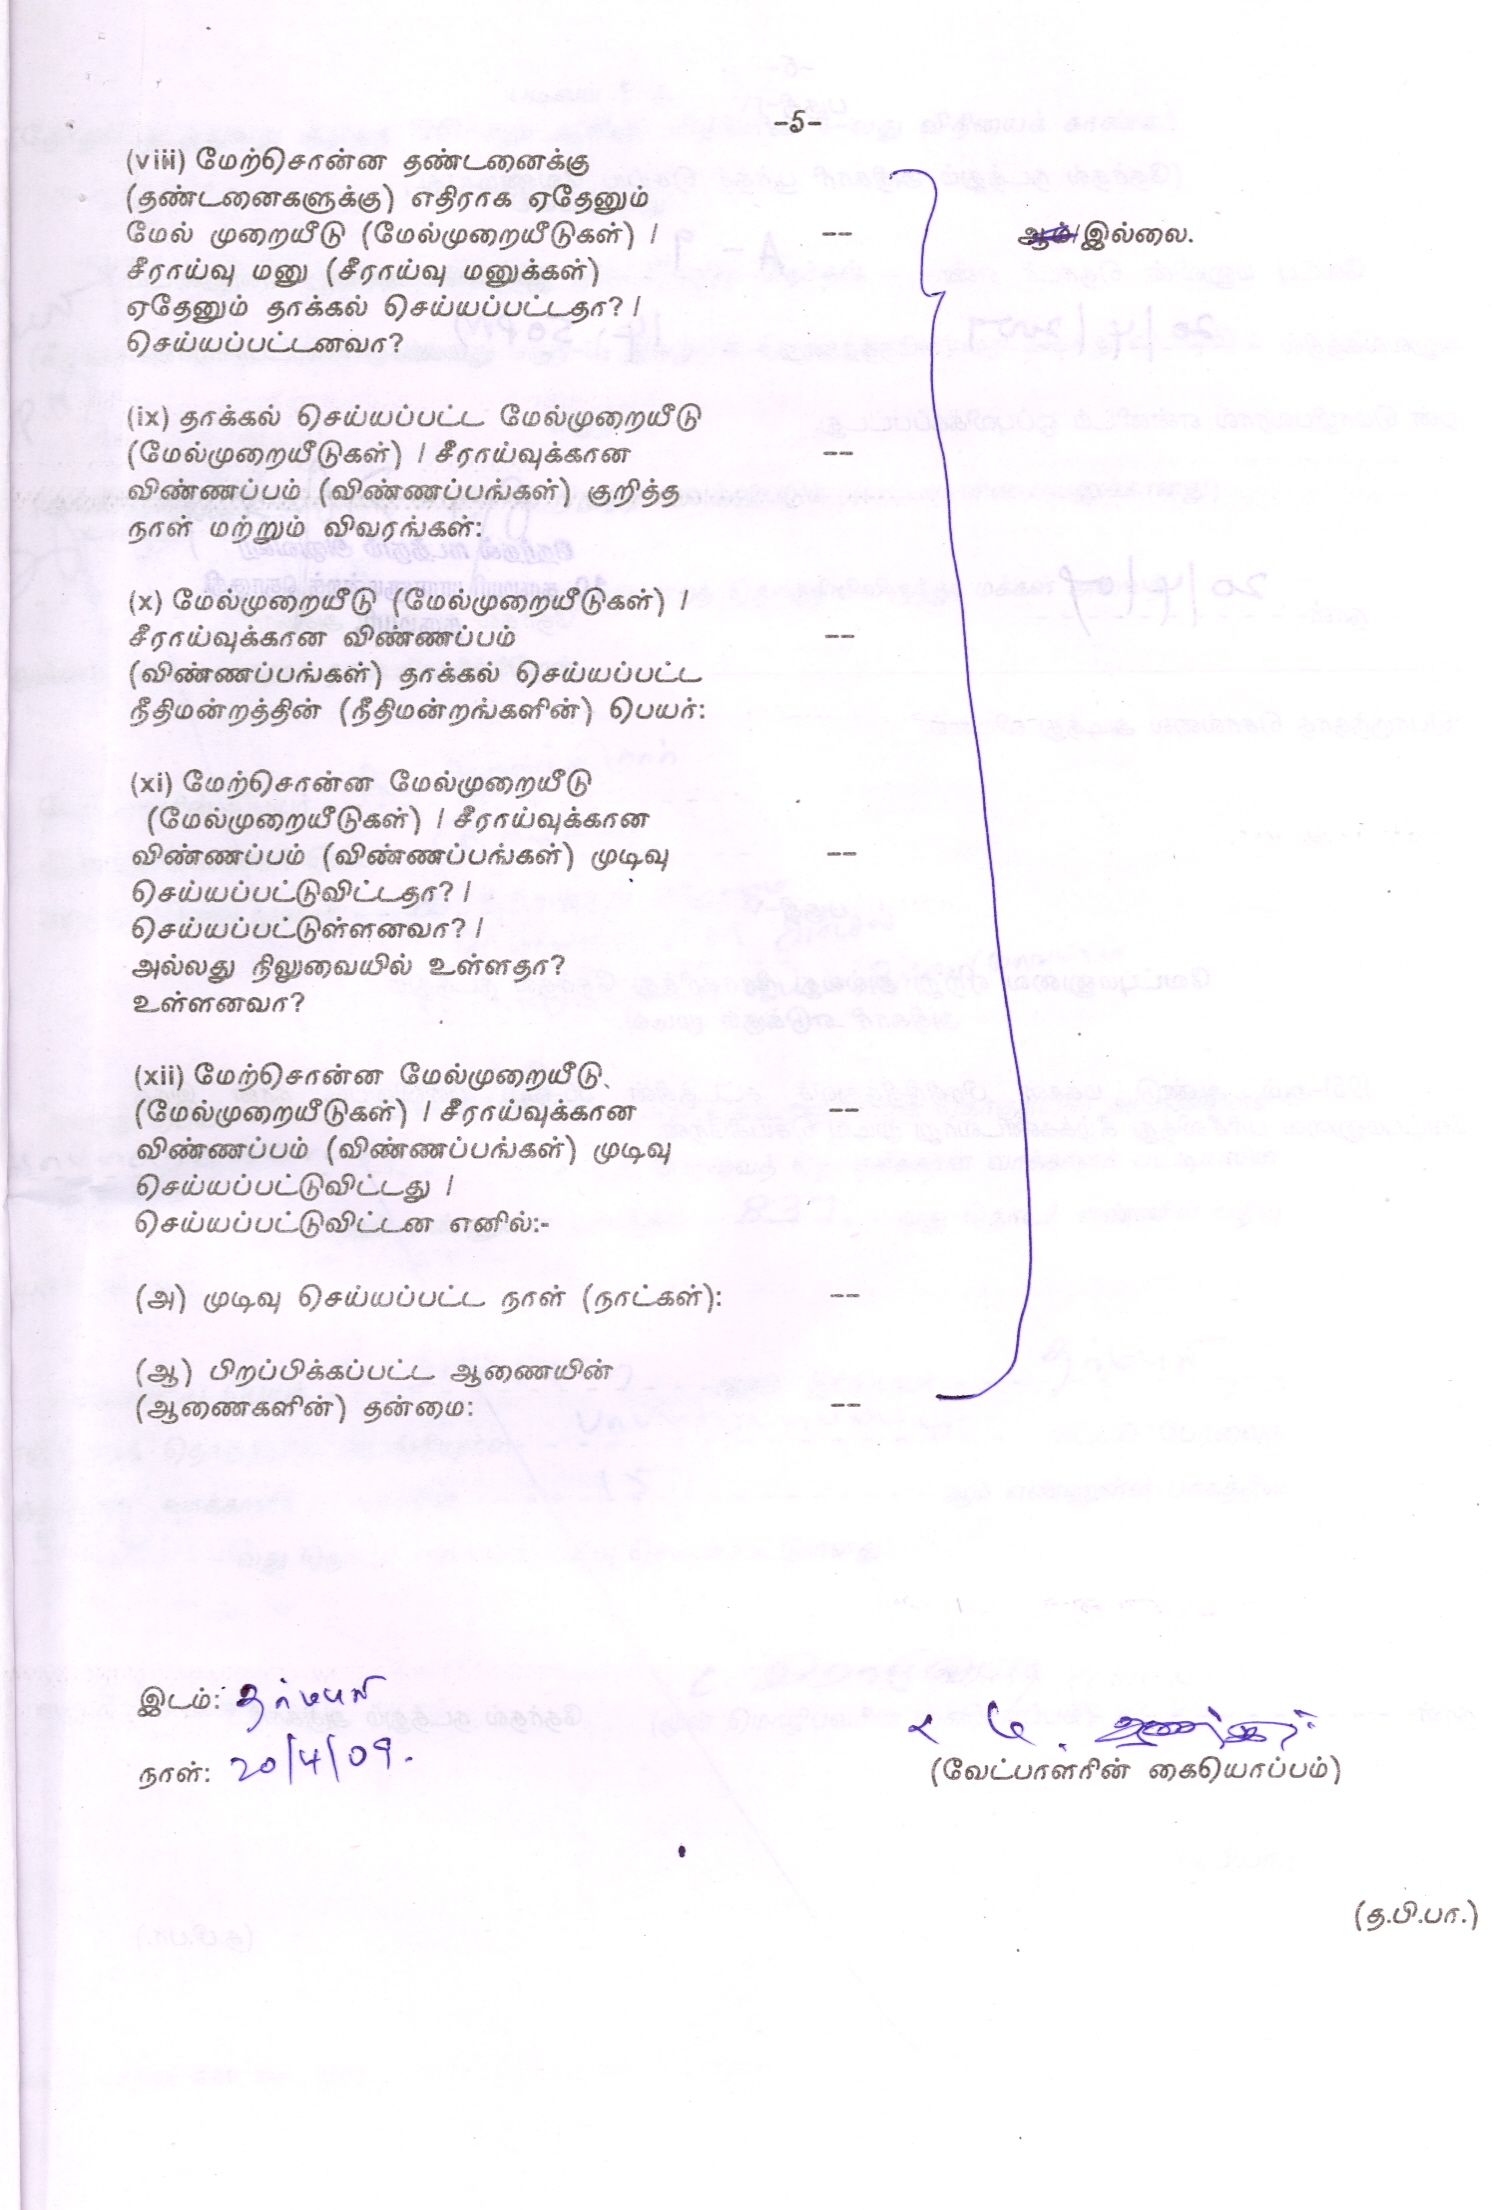 -5-
(viii) மேற்சொன்ன தண்டனைக்கு
(தண்டனைகளுக்கு) எதிராக ஏதேனும்
மேல் முறையீடு (மேல்முறையீடுகள்) / -- ஆம்/இல்லை.
சீராய்வு மனு (சீராய்வு மனுக்கள்)
ஏதேனும் தாக்கல் செய்யப்பட்டதா? /
செய்யப்பட்டனவா?
(ix) தாக்கல் செய்யப்பட்ட மேல்முறையீடு
(மேல்முறையீடுகள்) / சீராய்வுக்கான --
விண்ணப்பம் (விண்ணப்பங்கள்) குறித்த
நாள் மற்றும் விவரங்கள்:
(x) மேல்முறையீடு (மேல்முறையீடுகள்) /
சீராய்வுக்கான விண்ணப்பம் --
(விண்ணப்பங்கள்) தாக்கல் செய்யப்பட்ட
நீதிமன்றத்தின் (நீதிமன்றங்களின்) பெயர்:
(xi) மேற்சொன்ன மேல்முறையீடு
(மேல்முறையீடுகள்) / சீராய்வுக்கான
விண்ணப்பம் (விண்ணப்பங்கள்) முடிவு --
செய்யப்பட்டுவிட்டதா? /
செய்யப்பட்டுள்ளனவா? /
அல்லது நிலுவையில் உள்ளதா?
உள்ளனவா?
(xii) மேற்சொன்ன மேல்முறையீடு
(மேல்முறையீடுகள்) / சீராய்வுக்கான --
விண்ணப்பம் (விண்ணப்பங்கள்) முடிவு
செய்யப்பட்டுவிட்டது /
செய்யப்பட்டுவிட்டன எனில்:-
(அ) முடிவு செய்யப்பட்ட நாள் (நாட்கள்): --
(ஆ) பிறப்பிக்கப்பட்ட ஆணையின்
(ஆணைகளின்) தன்மை: --
இடம்: தர்மபுரி
நாள்: 20/4/09.
(வேட்பாளரின் கையொப்பம்)
(த.பி.பா.)